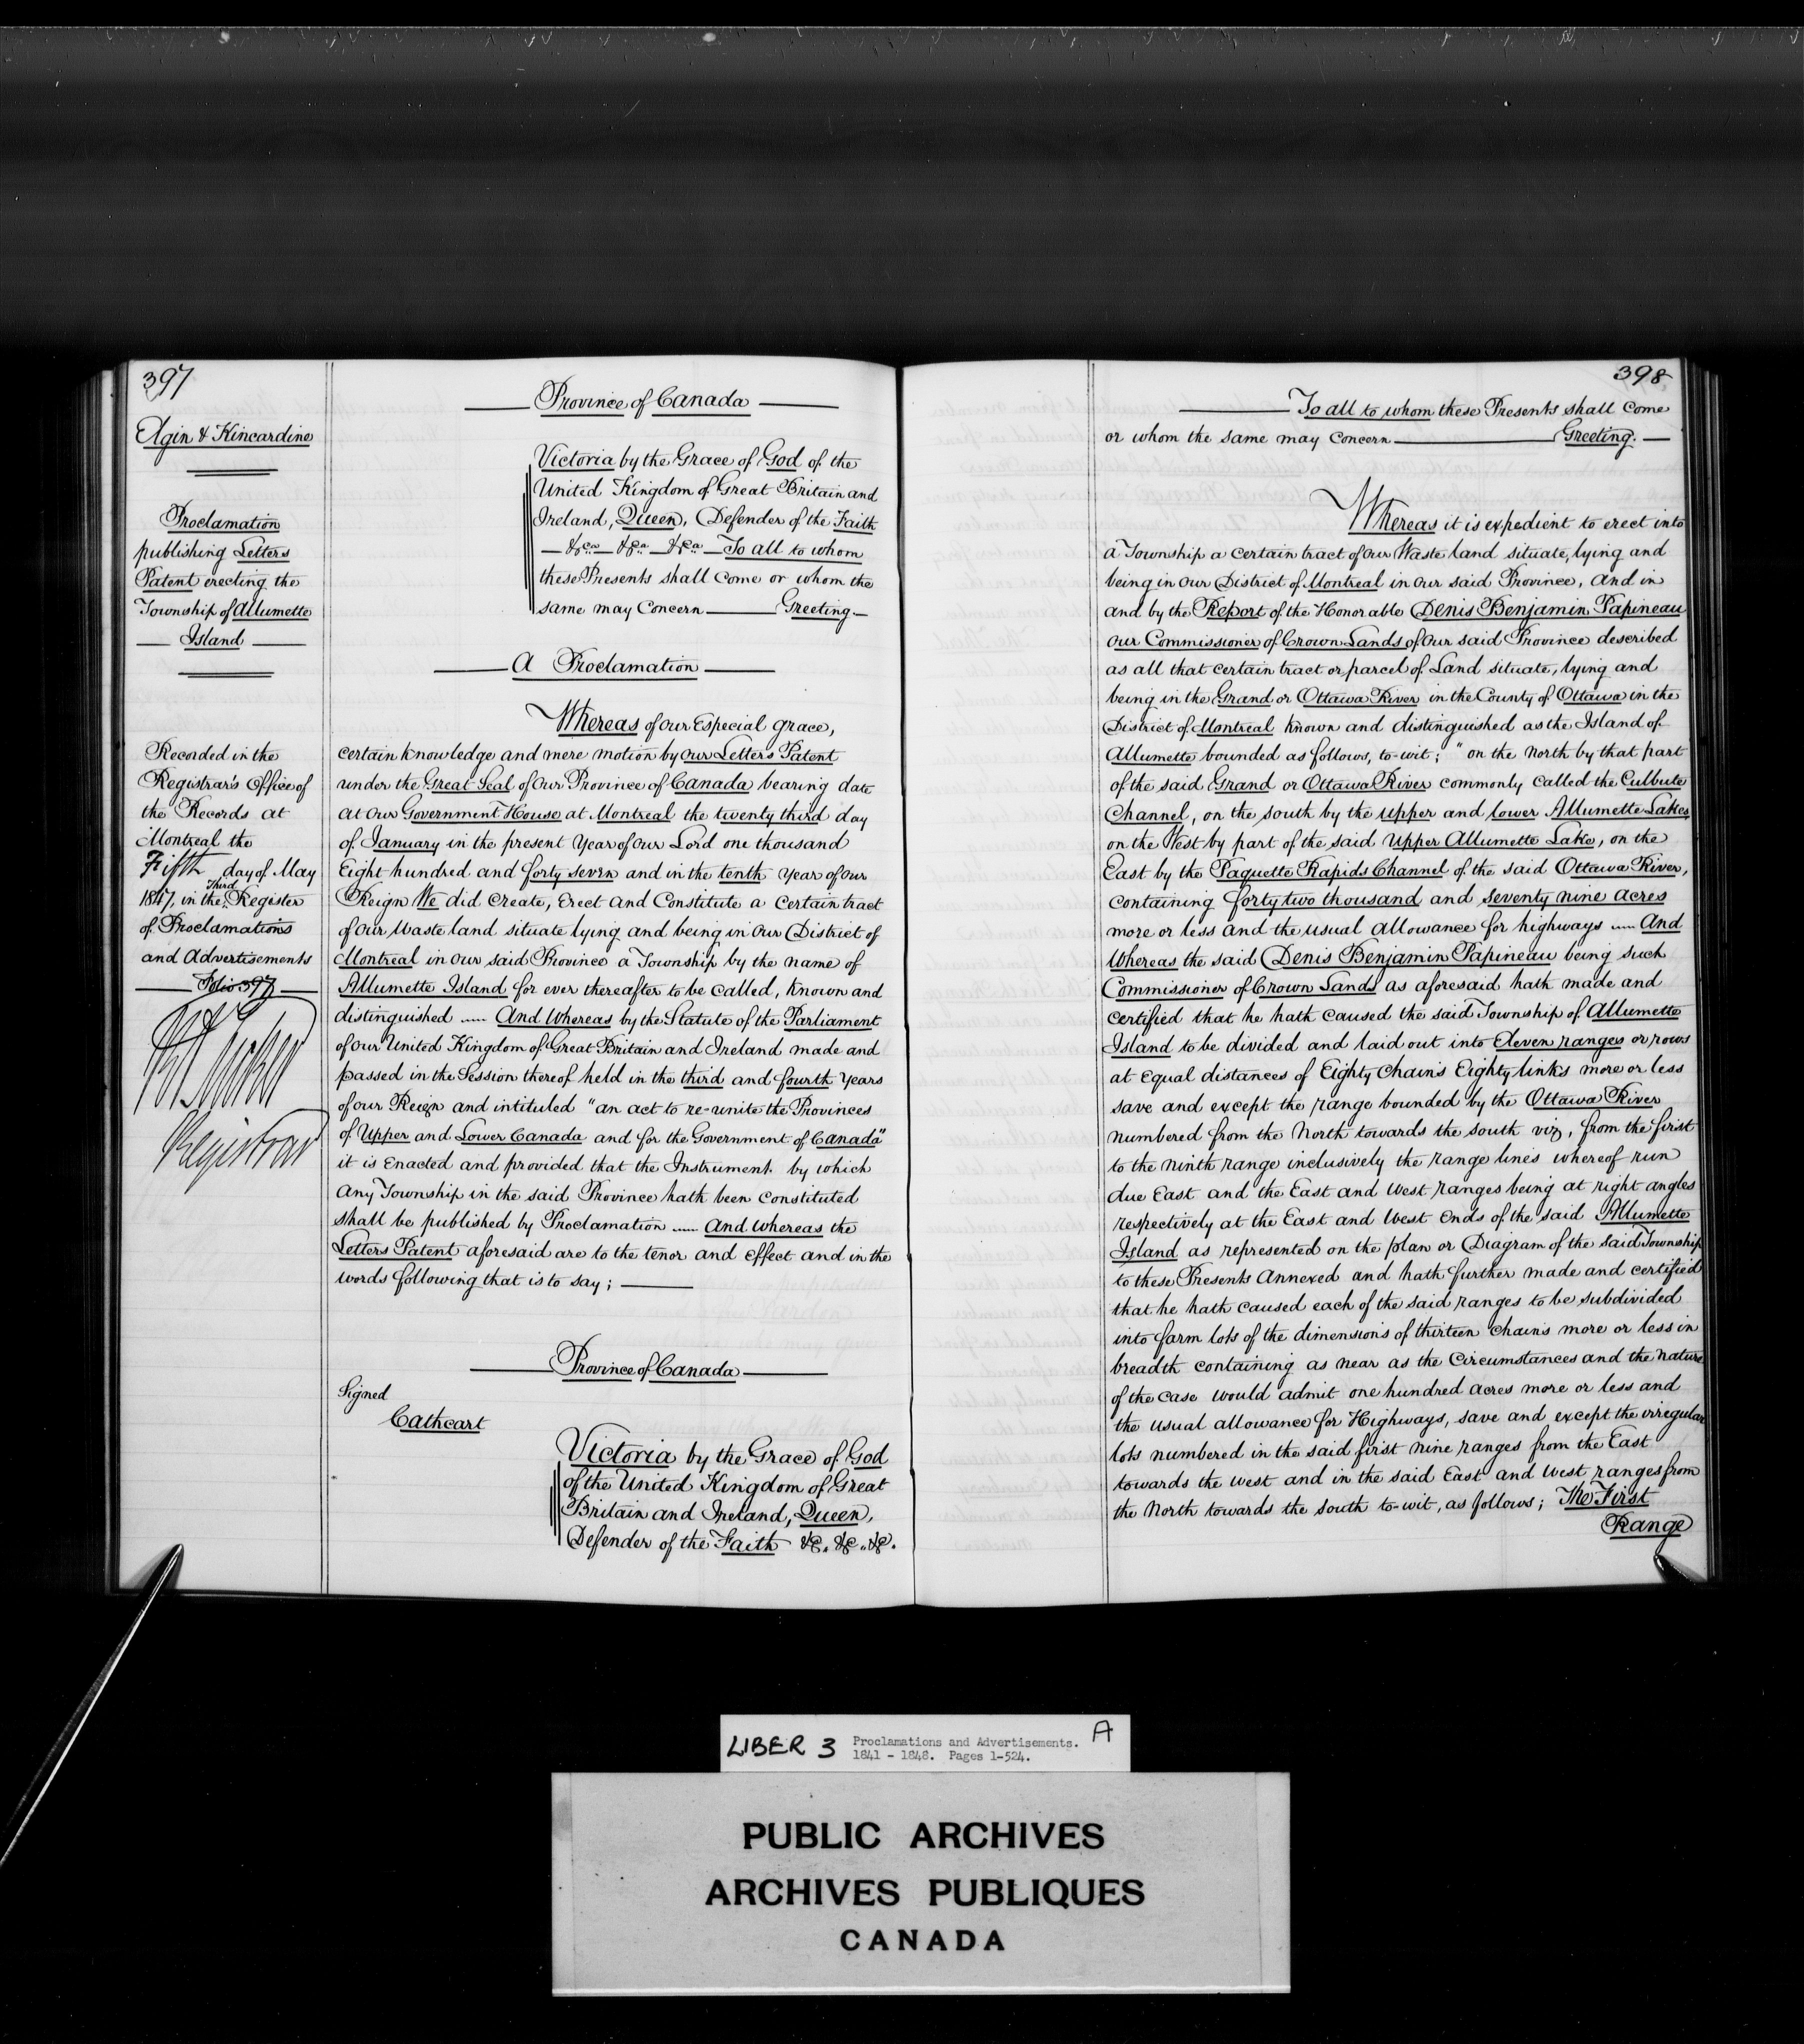 397
Elgin & Kincardine
Proclamation
publishing Letters
Patent erecting the
Township of Allumette
Island
Recorded in the
Registrar's Office of
the Records at
Montreal the
Fifth day of May
1847, in the Third Register
of Proclamations
and Advertisements
Folio 397
Registrar
Province of Canada
Victoria by the Grace of God of the
United Kingdom of Great Britain and
Ireland, Queen, Defender of the Faith
— &ca — &ca — &ca — To all to whom
these Presents shall come or whom the
same may Concern — Greeting —
A Proclamation
Whereas of our Especial Grace,
certain knowledge and mere motion by our Letters Patent
under the Great Seal of our Province of Canada bearing date
at our Government House at Montreal the twenty third day
of January in the present Year of our Lord one thousand
Eight hundred and forty seven and in the tenth Year of our
Reign We did create, Erect and Constitute a certain tract
of our Waste land situate lying and being in our District of
Montreal in our said Province a Township by the name of
Allumette Island for ever thereafter to be called, known and
distinguished — And Whereas by the Statute of the Parliament
of our United Kingdom of Great Britain and Ireland made and
passed in the Session thereof held in the third and fourth Years
of our Reign and intituled "an act to re-unite the Provinces
of Upper and Lower Canada and for the Government of Canada"
it is Enacted and provided that the Instrument by which
any Township in the said Province hath been constituted
shall be published by Proclamation — And Whereas the
Letters Patent aforesaid are to the tenor and effect and in the
words following that is to say; —
Province of Canada
Signed
Cathcart
Victoria by the Grace of God
of the United Kingdom of Great
Britain and Ireland, Queen,
Defender of the Faith &c. &c. &c.
398
To all to whom these Presents shall come
or whom the same may Concern — Greeting. —
Whereas it is expedient to erect into
a Township a certain tract of our Waste land situate, lying and
being in our District of Montreal in our said Province, and in
and by the Report of the Honorable Denis Benjamin Papineau
our Commissioner of Crown Lands of our said Province described
as all that certain tract or parcel of Land situate, lying and
being in the Grand or Ottawa River in the County of Ottawa in the
District of Montreal known and distinguished as the Island of
Allumette bounded as follows, to-wit; "on the North by that part
of the said Grand or Ottawa River commonly called the Culbute
Channel, on the south by the upper and lower Allumette Lakes,
on the West by part of the said Upper Allumette Lake, on the
East by the Paquette Rapids Channel of the said Ottawa River,
containing forty two thousand and seventy nine acres
more or less and the usual allowance for highways — And
Whereas the said Denis Benjamin Papineau being such
Commissioner of Crown Lands as aforesaid hath made and
certified that he hath caused the said Township of Allumette
Island to be divided and laid out into Eleven ranges or rows
at equal distances of Eighty Chains Eighty links more or less
save and except the range bounded by the Ottawa River
numbered from the North towards the south viz, from the first
to the ninth range inclusively the range lines whereof run
due East and the East and West ranges being at right angles
respectively at the East and West Ends of the said Allumette
Island as represented on the plan or Diagram of the said Township
to these Presents Annexed and hath further made and certified
that he hath caused each of the said ranges to be subdivided
into farm lots of the dimensions of thirteen chains more or less in
breadth containing as near as the Circumstances and the nature
of the case would admit one hundred acres more or less and
the usual allowance for Highways, save and except the irregular
lots numbered in the said first nine ranges from the East
towards the West and in the said East and West ranges from
the North towards the south to-wit, as follows; The First
Range
LIBER 3 Proclamations and Advertisements. A
1841 - 1848. Pages 1-524.
PUBLIC ARCHIVES
ARCHIVES PUBLIQUES
CANADA